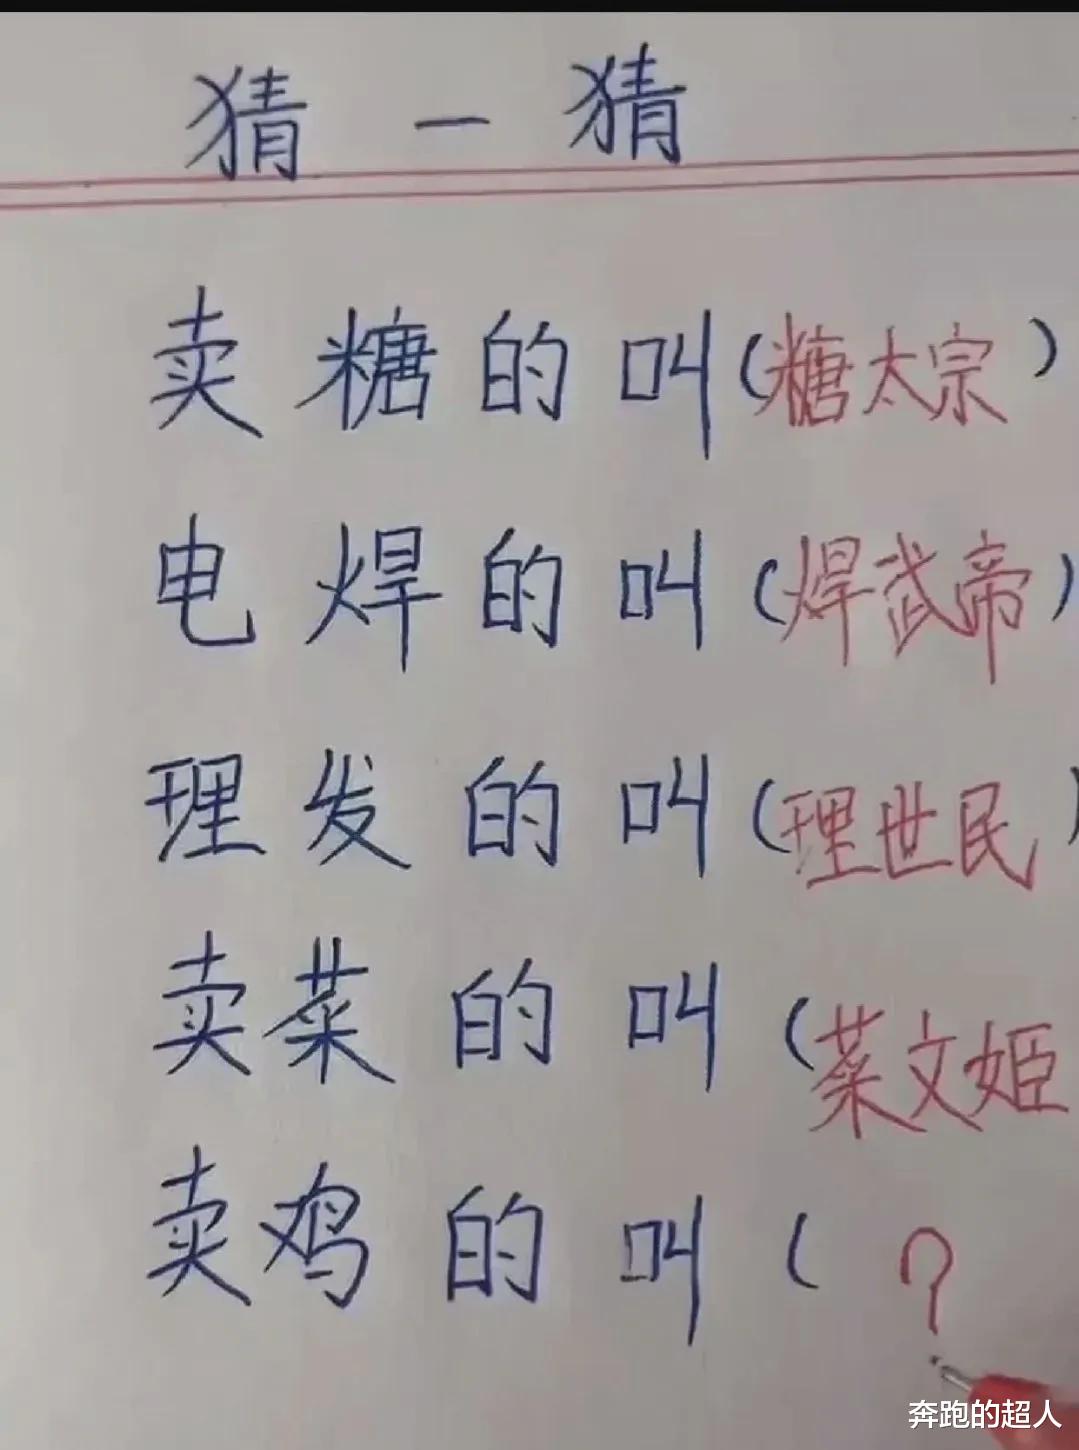 猜一猜
卖糖的叫(糖太宗)
电焊的叫(焊武帝)
理发的叫(理世民)
卖菜的叫(菜文姬
卖鸡的叫(?
奔跑的超人